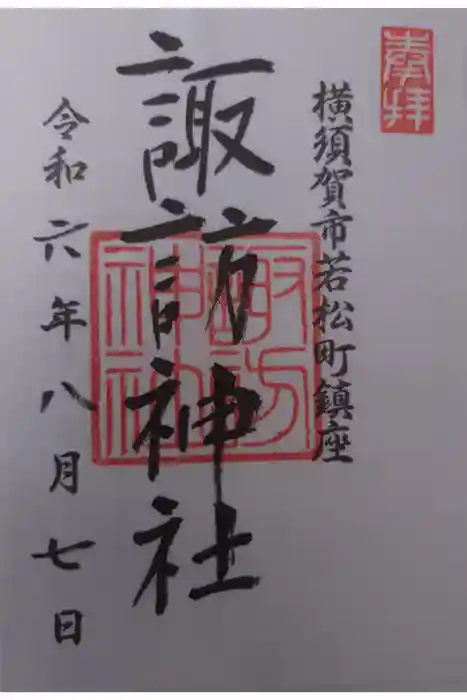 奉拝
横須賀市若松町鎮座
諏訪神社
諏訪神社
令和六年八月七日